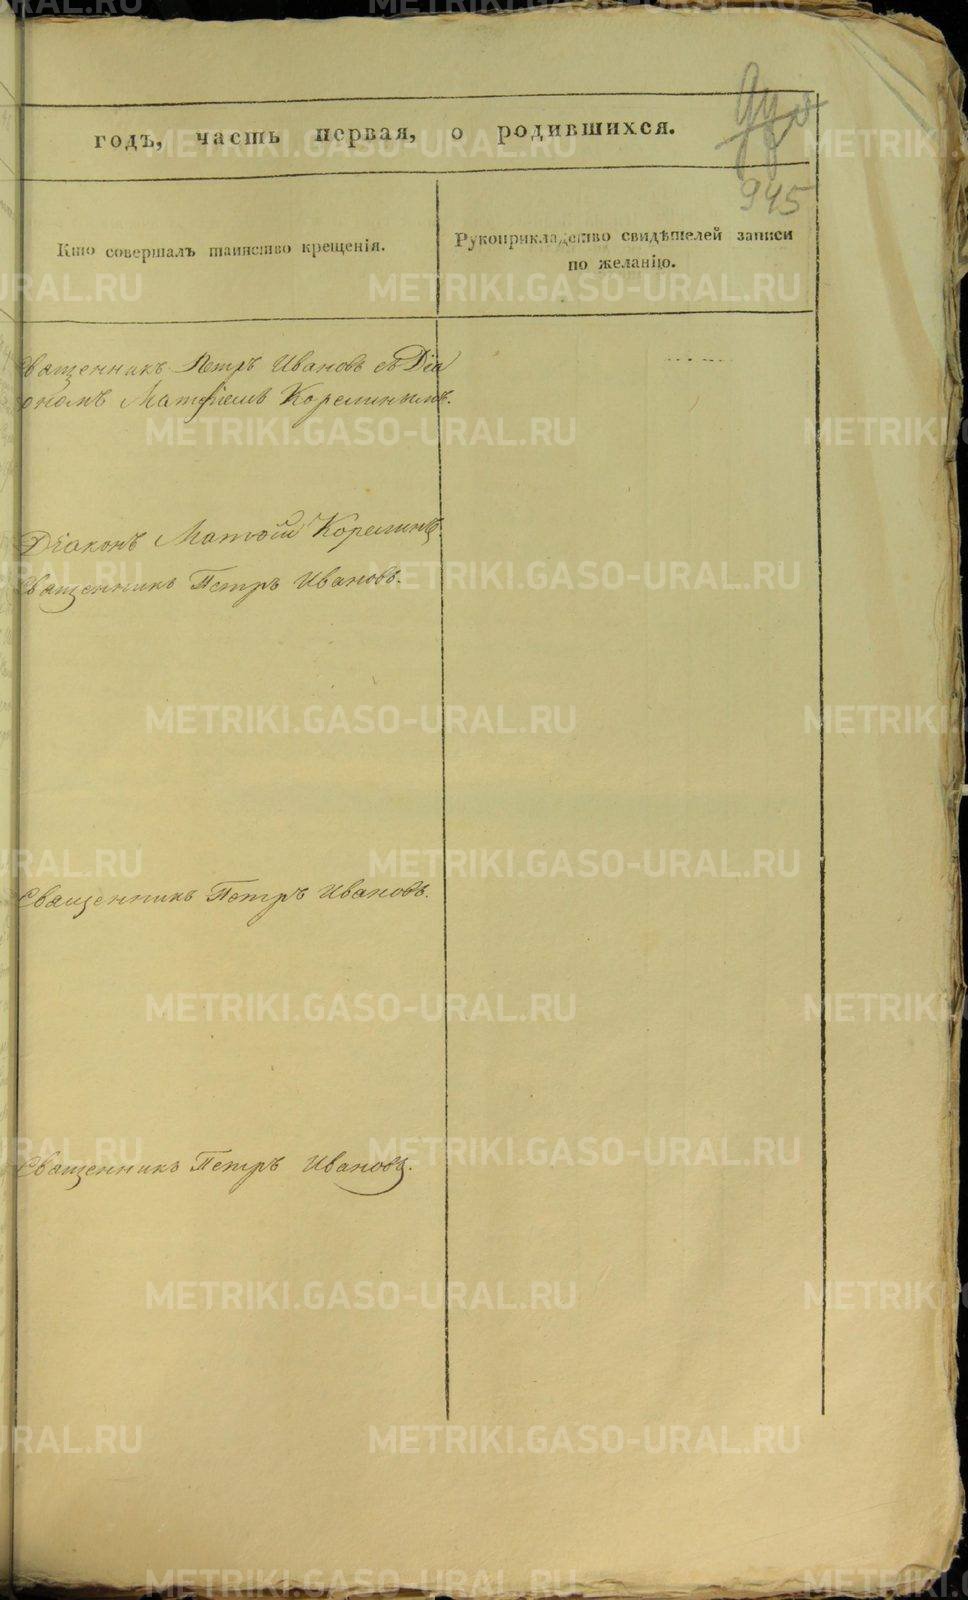 годъ, часть первая, о родившихся.
945
Кто совершалъ таинство крещенія.
Рукоприкладство свидѣтелей записи
по желанію.
Священникъ Петръ Ивановъ съ Діа
ономъ Матфіемъ Корелинымъ.
Діаконъ Матѳій Корелинъ.
Священникъ Петръ Ивановъ.
Священникъ Петръ Ивановъ.
Священникъ Петръ Ивановъ.
METRIKI.GASO-URAL.RU